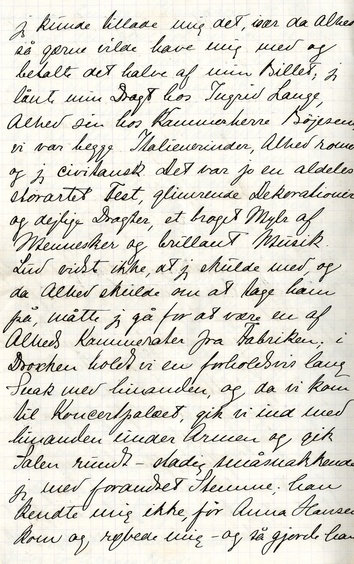 jeg kunde tillade mig det, især da Alhed
så gerne vilde have mig med og
betalt det halve af min Billet, jeg
lånte min Dragt hos Ingrid Lange,
Alhed sin hos Kammerherre Bøjesen
vi var begge Italienerinder, Alhed roma
og jeg civitansk. Det var jo en aldeles
storartet Fest, glimrende Dekorationer
og dejlige Dragter, et broget Mylr af
Mennesker og brillant Musik.
Lud vidst ikke, at jeg skulde med, og
da Alhed skulde om at tage ham
på, måtte jeg gå for at være en af
Alheds Kammerater fra Fabriken; i
Droschen holdt vi en forholdsvis lang
Snak med hinanden, og da vi kom
til Koncertpalæet, gik vi ind med
hinanden under Armen og gik
Salen rundt – stadig småsnakkende
jeg med forandret Stemme; han
kendte mig ikke, før Anna Hansen
kom og røbede mig – og så gjorde han